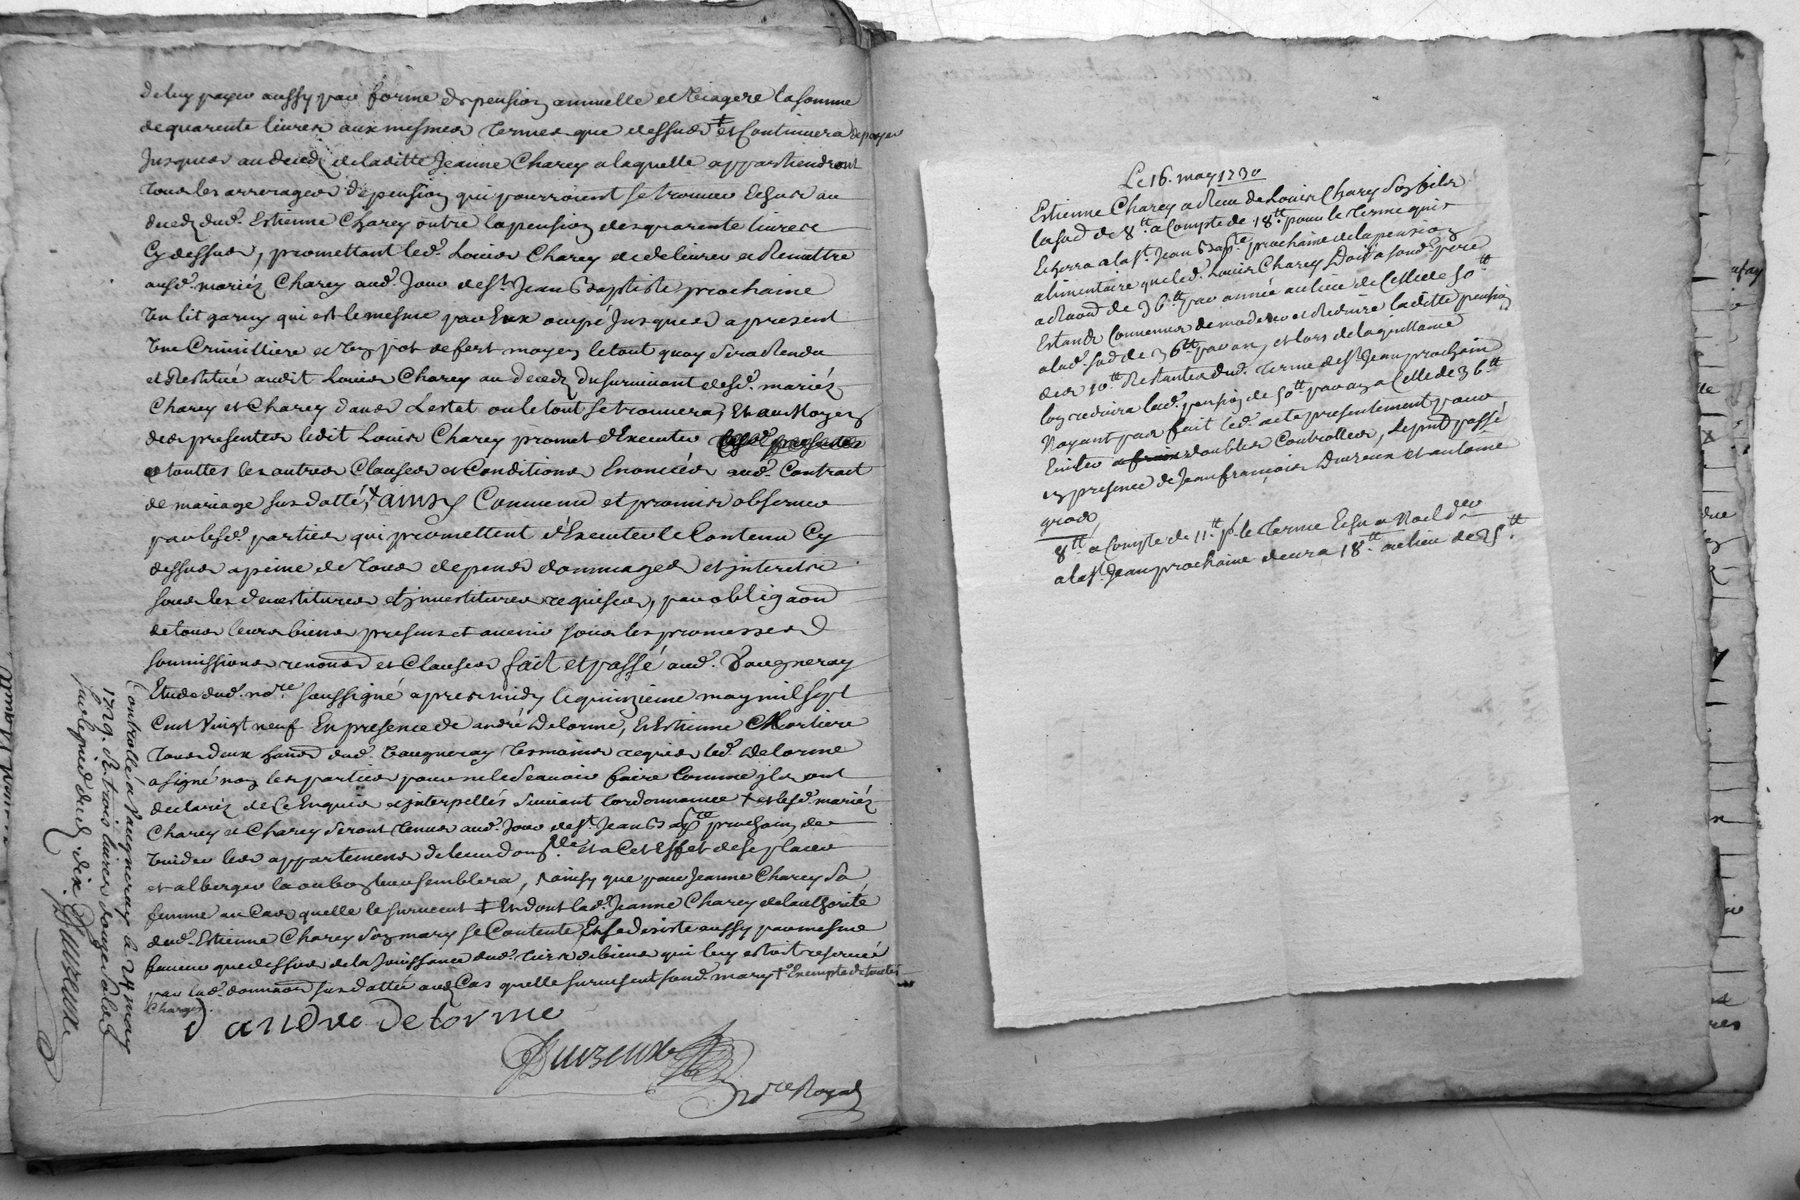 de luy payer aussy par forme de pension annuelle et viagere la somme
de quarente livres aux mesmes termes que dessus ‡ et Continuera de payer
Jusques au decedz de laditte Jeanne Charey a laquelle appartiendront
tous les arrerages de pension qui pourroient se trouver Echus au
decedz dud. Estienne Charey outre la pension des quarente livres
Cy dessus, promettant led. Louis Charey de delivrer et Remettre
ausd. mariéz Charey aud. Jour de st Jean Baptiste prochaine
Un lit garny qui est le mesme par Eux ocupé Jusques a present
Une Crimilliere et Un pot de fert moyen le tout quoy sera Rendu
et Restitué audit Louis Charey au decedz du survivant desd. mariéz
Charey et Charey dans Lestat ou le tout se trouvera, Et au Moyen
des presentes ledit Louis Charey promet d'Executer
touttes les autres Clauses et Conditions Enoncées aud. Contrat
de mariage sus datté, ainsy Convenu et promis observer
par lesd. parties qui promettent d'Executer le Contenu Cy
dessus a peine de tous depens dommages et interets
sous les devestitures et investitures requises, par obligaon
de tous leurs biens presens et avenir sous les promesses
soumissions renonons et Clauses fait et passé aud. Vaugneray
Etude dud. nore soussigné apres midy le quinzieme may mil sept
Cent Vingt neuf En presence de andré Delorme, Et Estienne Mortiere
tous deux habans dud. Vaugneray temoins requis led. Delorme
a signé non les parties pour ne le sçavoir faire Comme jls ont
declaréz de Ce Enquis et interpellés suivant Lordonnance † et lesd. mariéz
Charey et Charey seront tenus aud. Jour de st Jean Bapte prochain de
Vuider les appartemens de leurd domlle et a Cet Effet de se placer
et alberger la ou bon leur semblera, ainsy que pour Jeanne Charey sa
femme au Cas quelle le survecut ‡ Et dont lad. Jeanne Charey de lauthorité
dud. Estienne Charey son mary se Contente, Et se desiste aussy par mesme
faveur que dessus de la Jouissance dud. tiers de biens qui luy estoit reservée
par lad. donnaon sus dattée aud Cas quelle survesent sond. mary † Exempte de toutes
Charges.
andre Delorme
Duvzeux
Nore Royal
Controllé a Vaugneray le 24 may
1729. R. trois livres douze sols
Duvzeux
Le 16. may 1730
Estienne Charey a Receu de Louis Charey son fils
la so͞e de 8 tt a Compte de 18 tt pour le terme qui
Echerra a la st. Jean Bapte prochaine de la pension
alimentaire que led. Louis Charey Doit a sond. pere
a Raison de 36 tt par année au lieu de Celle de 50 tt
Estants Convenus de moderer et Reduire laditte pension
a lad. so͞e de 36 tt par an, et lors de la quittance
des 10 tt Restantes dud. terme de st Jean prochain
lon reduira lad. pension de 50 tt par an a Celle de 36 tt
Nayant pas fait led. acte presentement pour
Eviter doubles Controlles, le pnt passé
en presence de Jean françois Duvzeux et antoine
gros
8 tt a Compte de 11 tt pr le terme Echu a Noel der
a la st. Jean prochaine devra 18 tt au lieu de 25 tt.